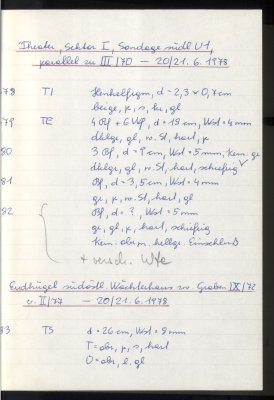 Theater, Sektor I, Sondage südl U1,
parallel zu III/70 — 20/21. 6. 1978
78 T1 Henkelfrgm, d = 2,3 x 0,7cm
beige, p, s, hr, gl
79 T2 4 Rf + 6 Wf, d = 19 cm, Wst = 4mm
dklge, gl, w. St, hart, p
80 3 Rf, d = ? cm, Wst = 5mm, Kern. gr
dklge, gl, w. St, hart, schiefrig
81 Rf, d = 3,5cm, Wst = 4mm
gr, p, w. St, hart, gl
82 Rf, d = ?, Wst = 5mm
gr, gl, p, hart, schiefrig
+ versch. Wfe
Endhügel südöstl. Wächterhaus zw. Graben IX/72
u. II/77 — 20/21. 6. 1978
83 T3 d = 26 cm, Wst = 9mm
T = obr, p, s, hart
O = obr, l. gl